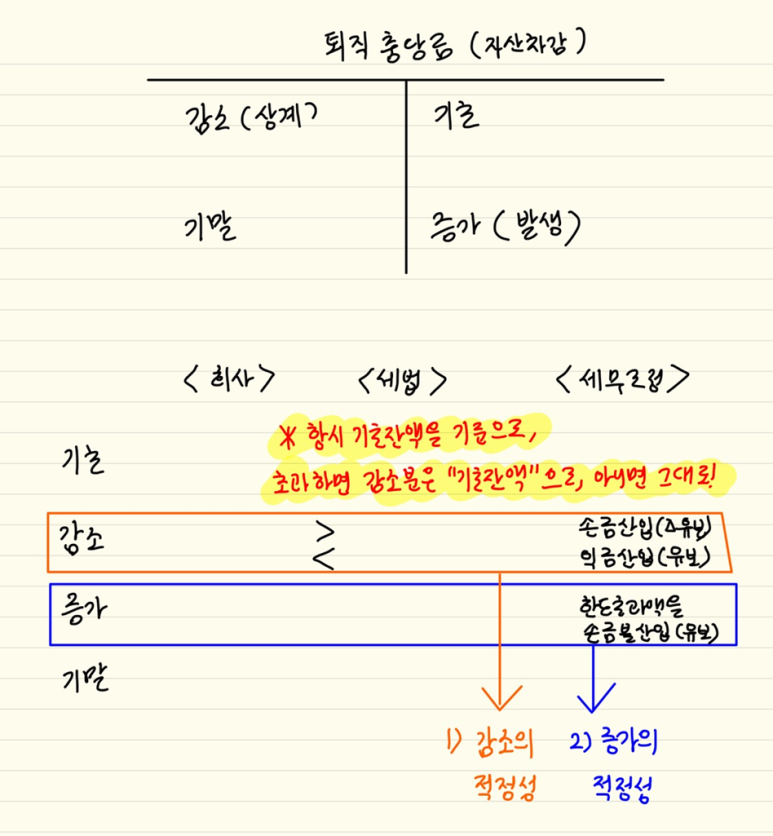 퇴직 충당금 (자산차감)
감소 (상계) 기초
기말 증가 (발생)
<회사> <세법> <세무조정>
기초 * 항시 기초잔액을 기준으로,
초과하면 감소분은 "기초잔액"으로, 아니면 그대로!
감소 > 손금산입(△유보)
< 익금산입(유보)
증가 한도초과액을
손금불산입(유보)
기말
1) 감소의 2) 증가의
적정성 적정성